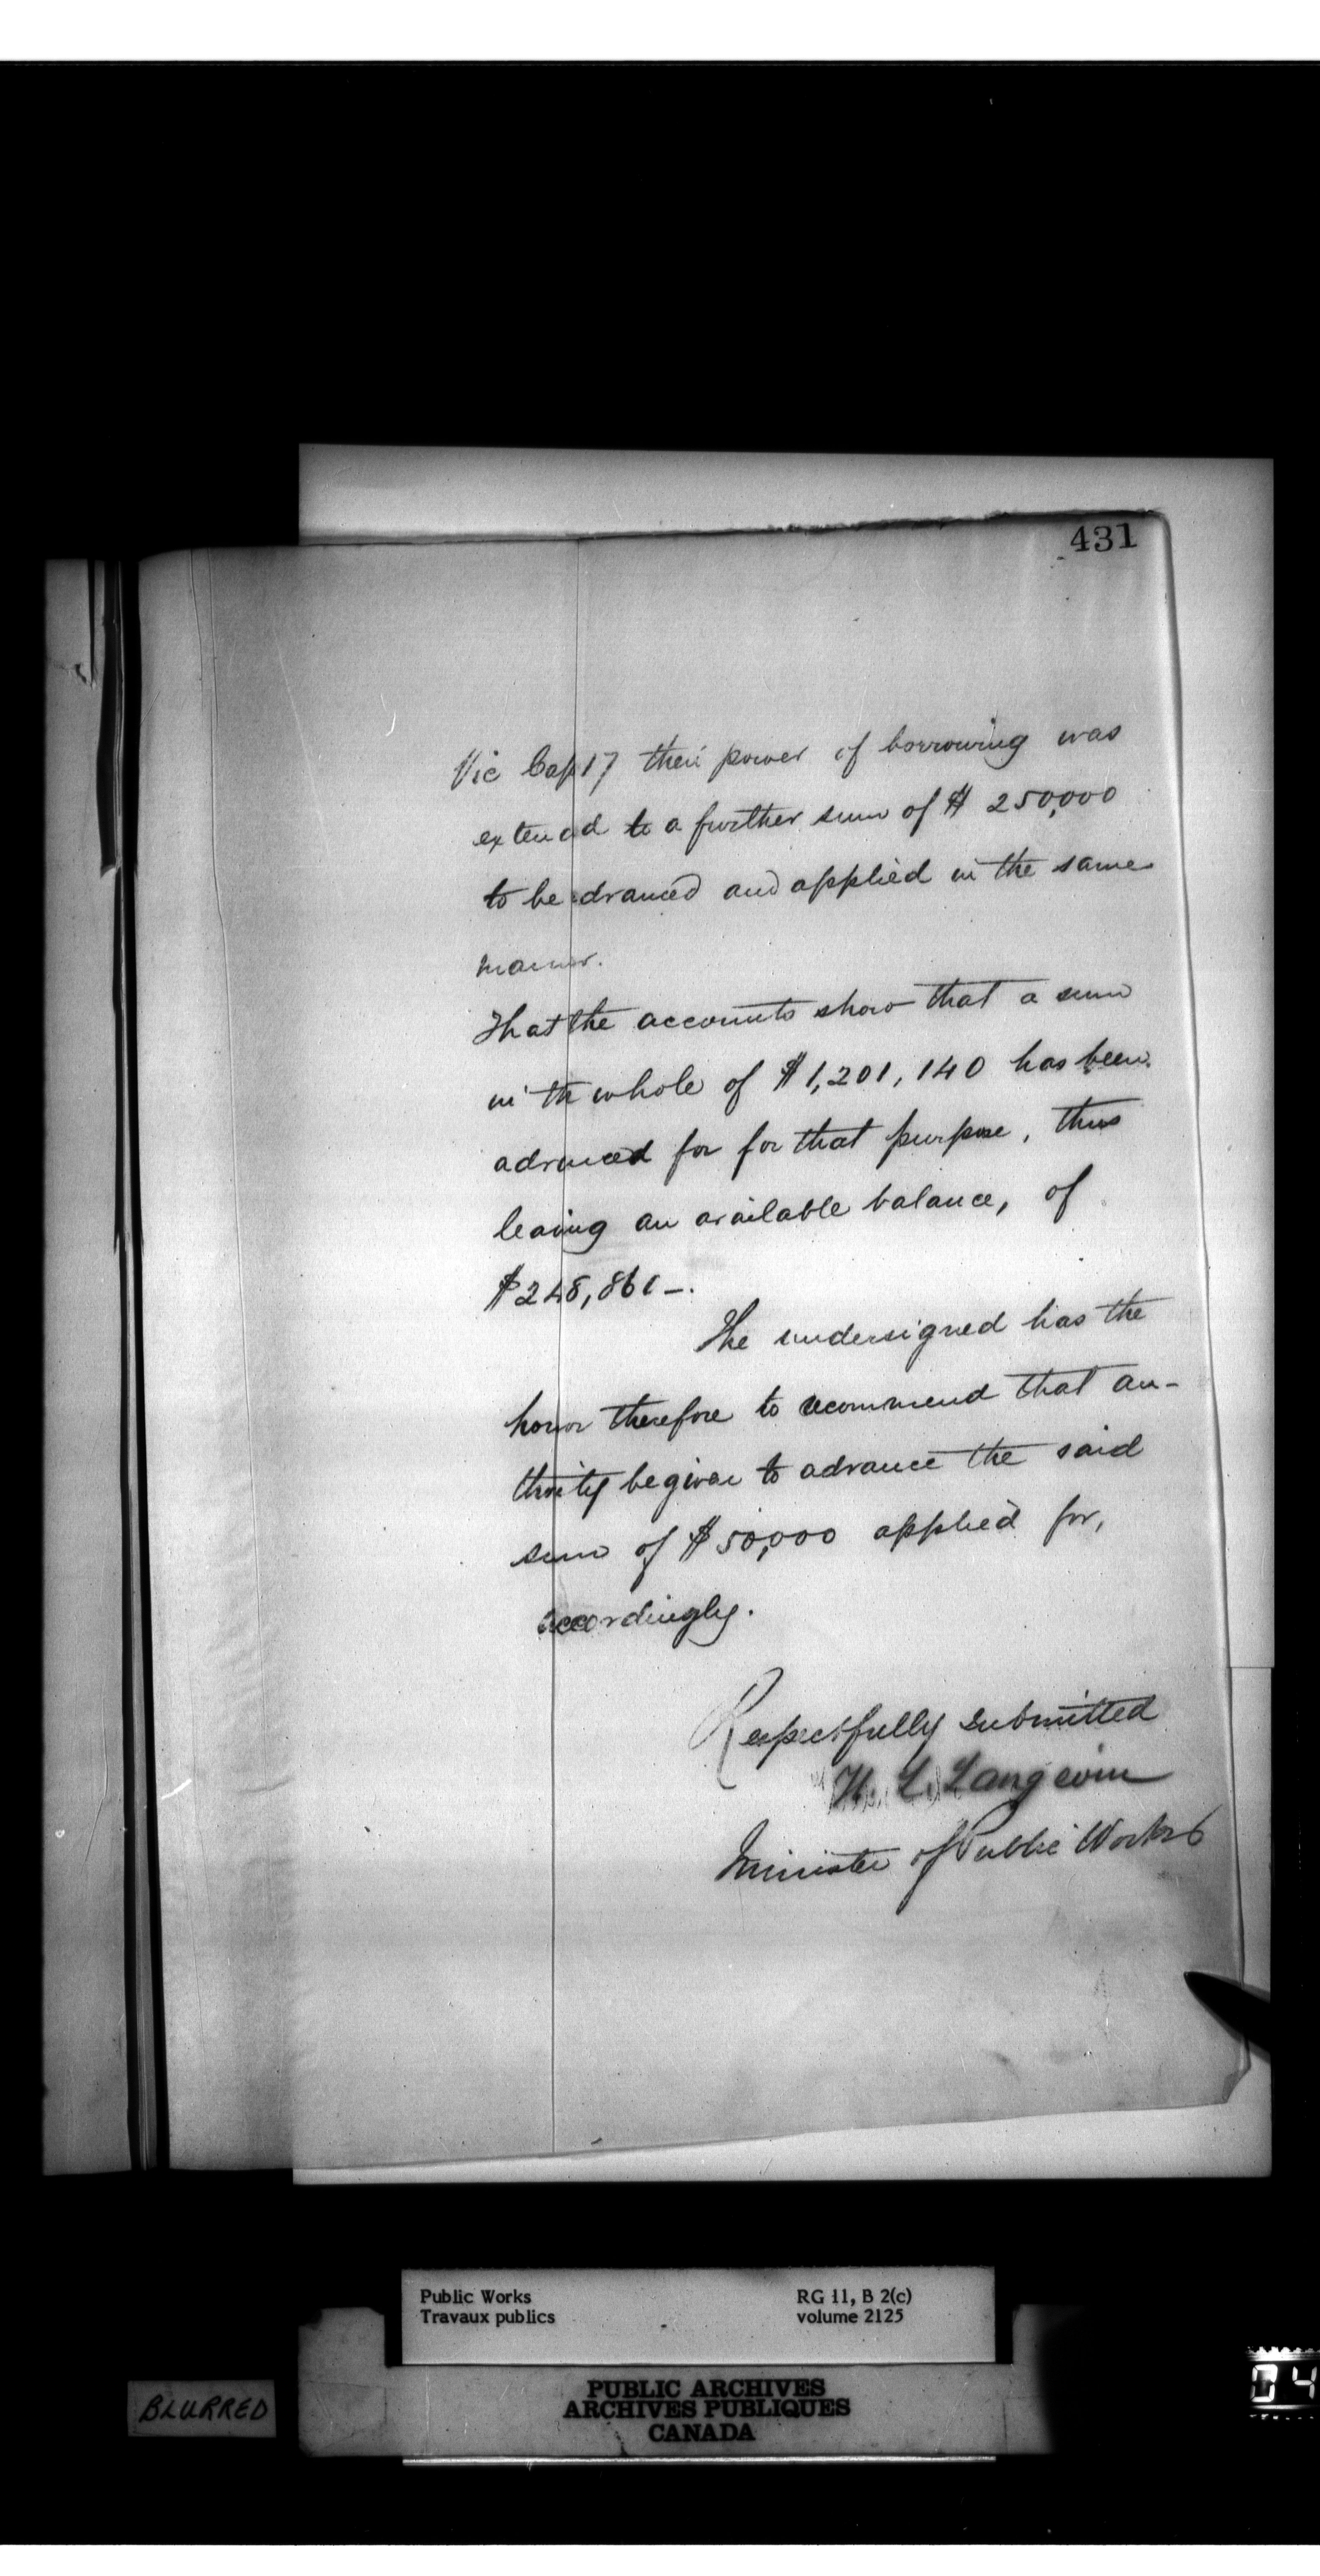 431
Vic Cap 17 their power of borrowing was
extended to a further sum of $ 250,000
to be advanced and applied in the same
manner.
That the accounts show that a sum
in the whole of $1,201,140 has been
advanced for for that purpose, thus
leaving an available balance, of
$248,861-.
The undersigned has the
honor therefore to recommend that au-
thority be given to advance the said
sum of $50,000 applied for,
accordingly.
Respectfully submitted
H. L. Langevin
Minister of Public Works
Public Works
Travaux publics
RG 11, B 2(c)
volume 2125
PUBLIC ARCHIVES
ARCHIVES PUBLIQUES
CANADA
BLURRED
04